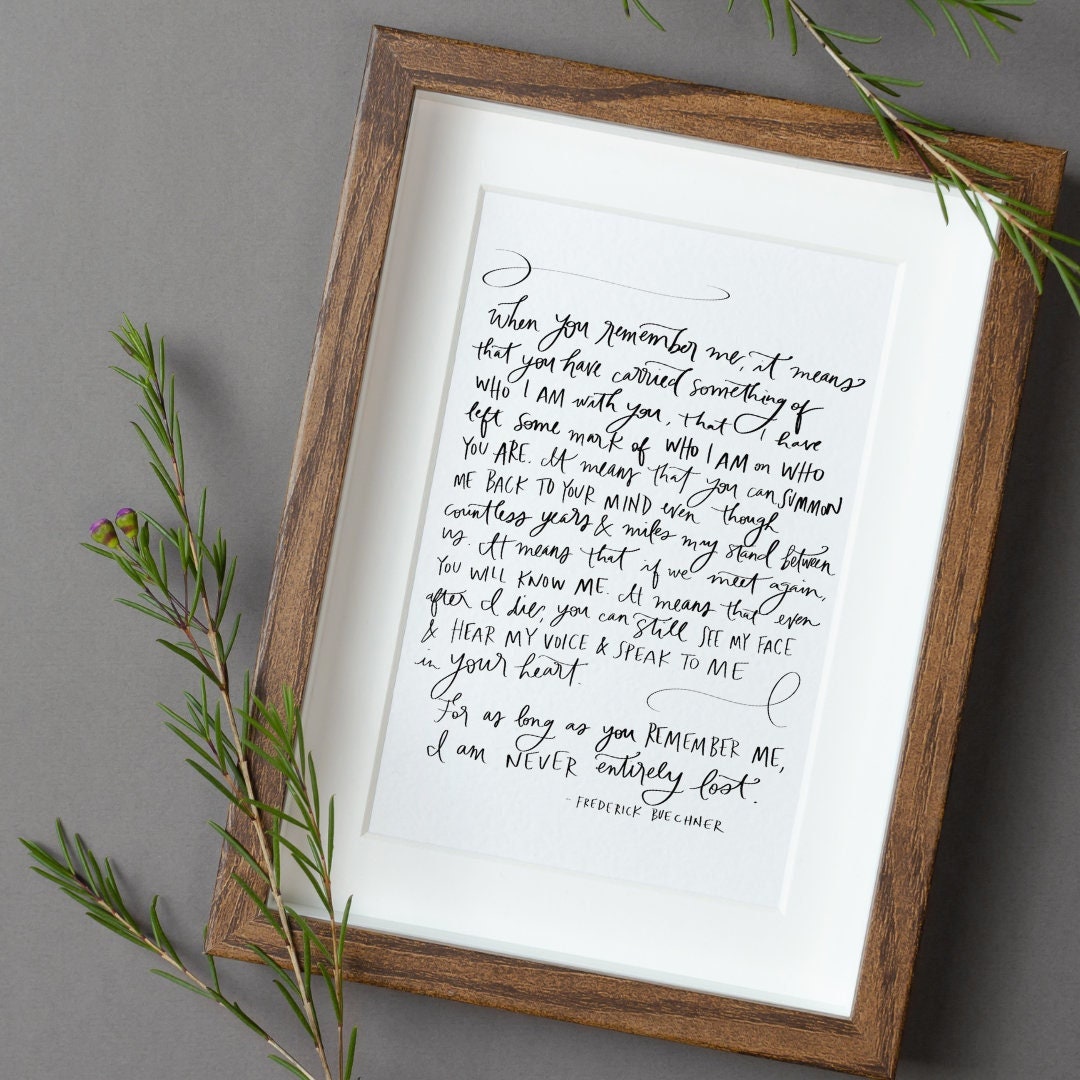 When you remember me, it means
that you have carried something of
WHO I AM with you, that I have
left some mark of WHO I AM on WHO
YOU ARE. It means that you can SUMMON
ME BACK TO YOUR MIND even though
countless years & miles may stand between
us. It means that if we meet again,
YOU WILL KNOW ME. It means that even
after I die, you can still SEE MY FACE
& HEAR MY VOICE & SPEAK TO ME
in your heart.
For as long as you REMEMBER ME,
I am NEVER entirely lost.
- FREDERICK BUECHNER